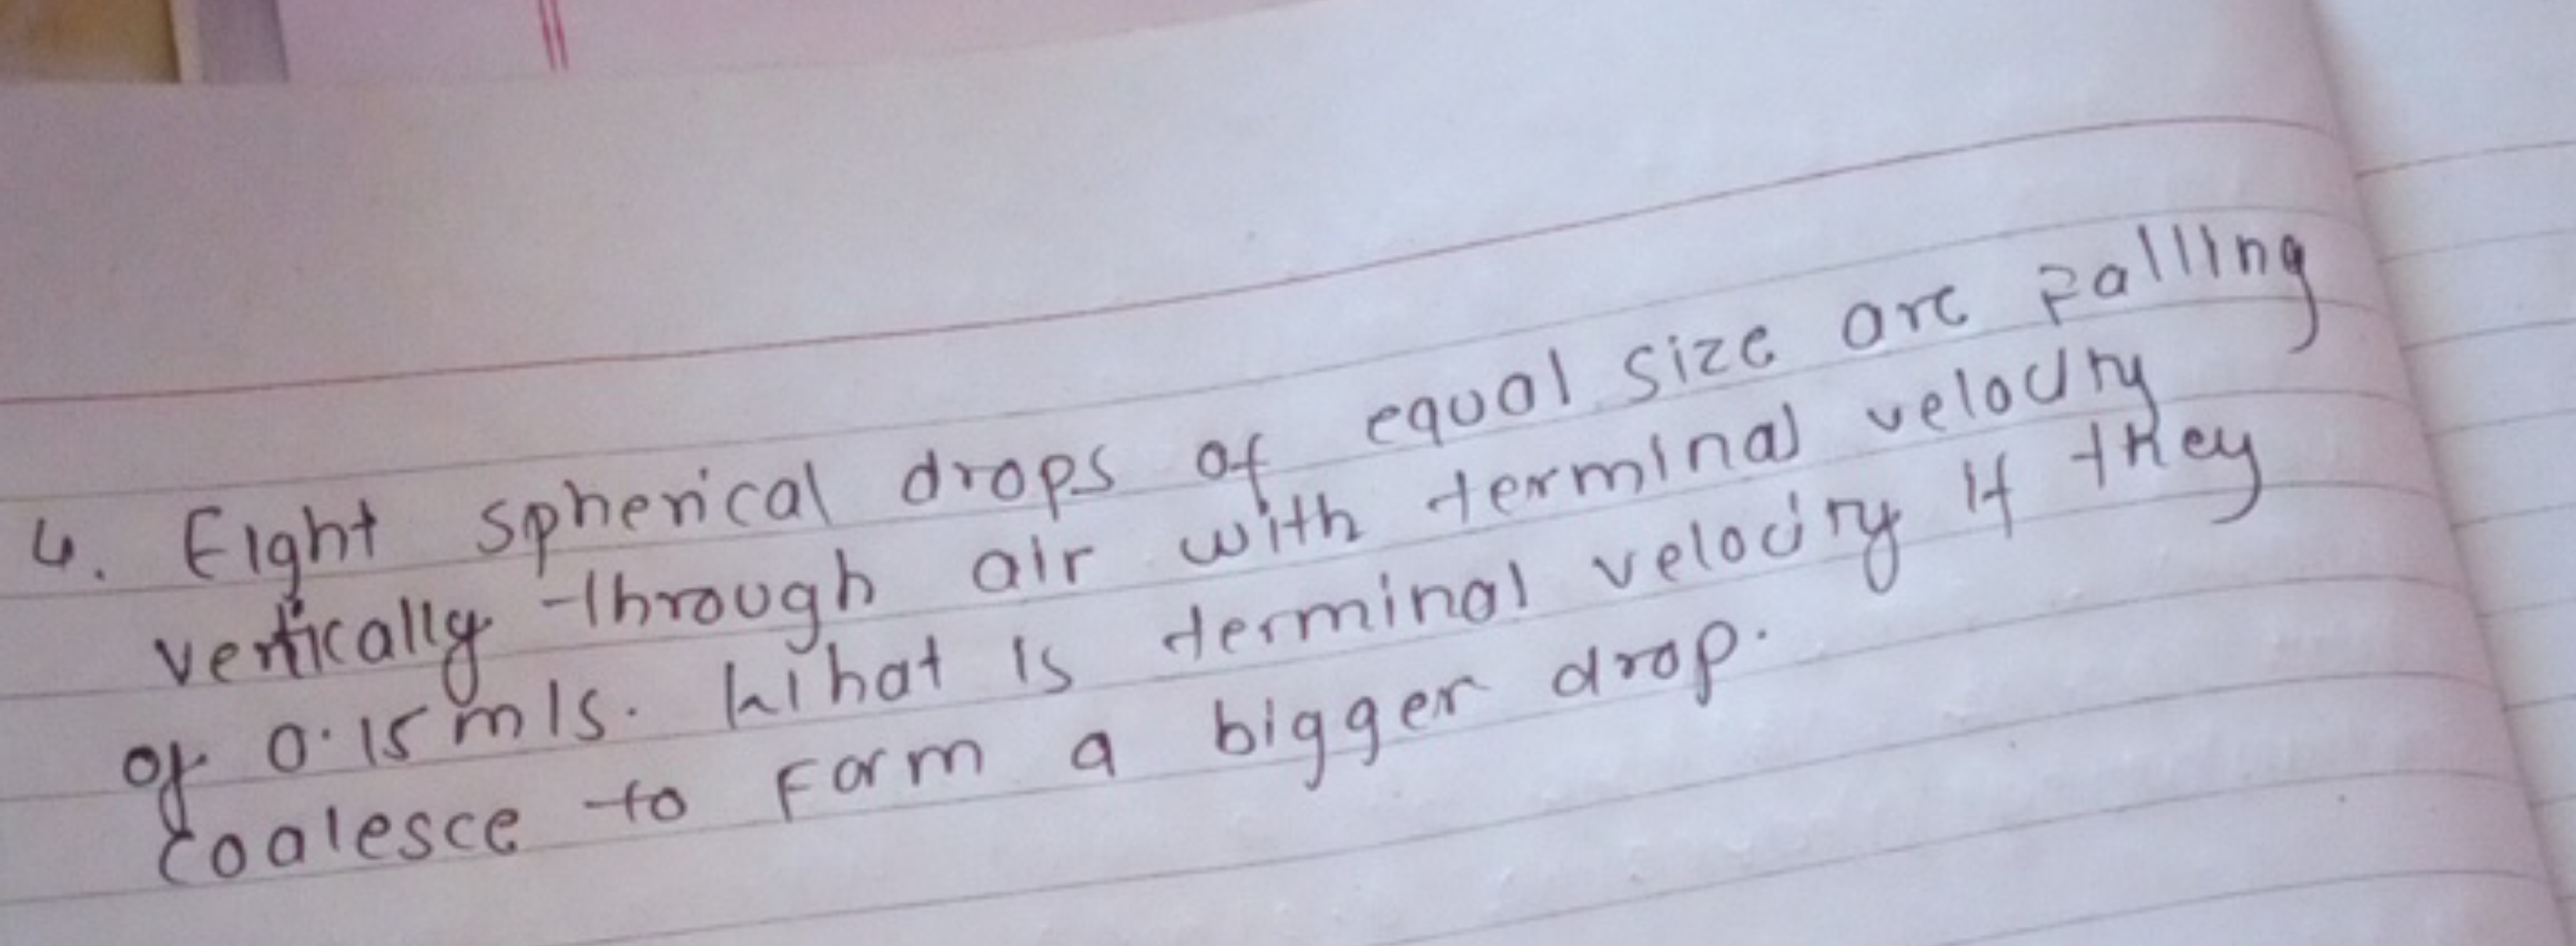 4. Eight spherical drops of equal size are falling
vertically through air with terminal velocity
of 0.15 m/s. What is terminal velocity if they
coalesce to form a bigger drop.